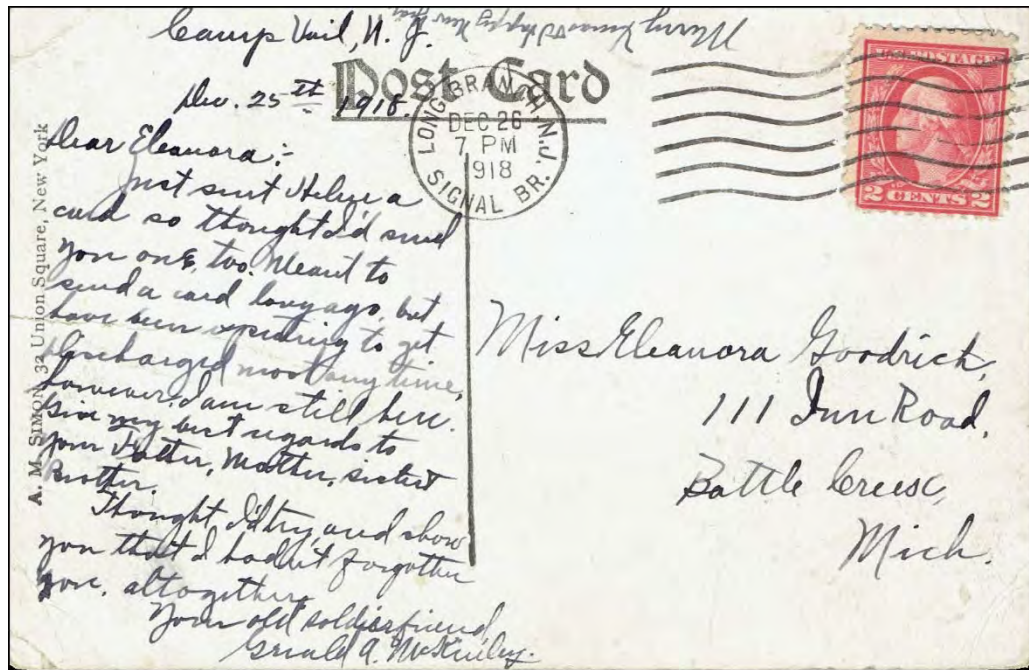 Merry Xmas and Happy New Year
Camp Vail, N. J.
Post Card
Dec. 25th 1918.
LONG BRANCH, N.J.
DEC 26
7 PM
1918
SIGNAL BR.
U.S. POSTAGE
2 CENTS 2
A. M. SIMON, 32 Union Square, New York
Dear Eleanora:-
Just sent Helen a
card so thought I'd send
you one, too. Meant to
send a card long ago, but
have been expecting to get
discharged most any time,
however, I am still here.
Give my best regards to
your Father, Mother, sister &
Brother.
Thought I'd try and show
you that I hadn't forgotten
you, altogether.
Your old soldier friend,
Gerald A. McKinley.
Miss Eleanora Goodrich,
111 Inn Road,
Battle Creek,
Mich.